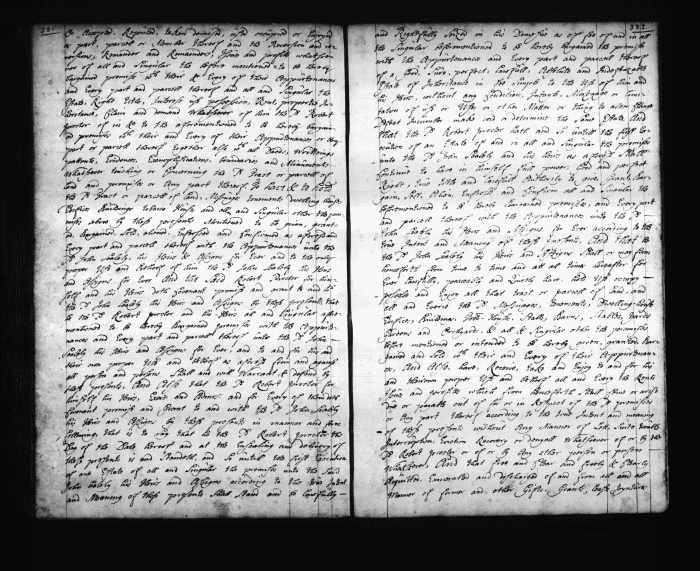 321
Or Accepted, Reputed, taken demised, used occupied or Enjoyed
as part, parcell or Member thereof and the Reversion and re-
versions, Remainder and Remainders, Issues and profits whatsoever
of all and Singular the before mentioned to be hereby
bargained premises with their & Every of their Appurtenances
and Every part and parcell thereof and all and Singular the
Estate, Right, title, Interest use possession, Rent, property, In-
heritance, Claim and demand Whatsoever of him the Sd. Robert
procter of in & to the aforementioned to be hereby bargain-
premises with their and Every of their Appurtenances or Any
part or parcell thereof together also with all Deeds, Writeings
pattents, Evidences, Exemplifications, boundaries and Muniments
Whatsoever touching or Concerning the Sd. tract or parcell of
land and premises or Any part thereof, To have & to hold
the Sd. tract or parcell of land, Messuage tenements dwelling house
Edifice buildings
by these presents
bargained, Sold, aliened, Enfeoffed and Confirmed as aforesd and
Every part and parcell thereof with the Appurtenances unto the
Sd. John his Heirs & Assigns for Ever and to the only
proper Use and behoof of him the Sd. John his Heirs
and Assigns for Ever And the Said Robert Procter for him-
self and his Heirs doth Covenant promise and grant to and with
the Sd. John his Heirs and Assigns by these presents that
he the Sd. Robert procter and his Heirs all and Singular afore-
mentioned to be hereby bargained premises with the Appurte-
nances and Every part and parcell thereof unto the Sd. John
his Heirs and Assigns for Ever, and to and for his and
their own proper Use and behoof as aforesd from and against
all persons Shall and will Warrant & defend by
these presents, And Also that the Sd. Robert procter for
himself his Heirs, Execrs and Admrs. and for Every of them doth
Covenant promise and Grant to and with the Sd. John
his Heirs and Assigns by these presents in manner and form
following that is to Say that he the Sd. Robert procter the
Day of the Date hereof and at the Ensealing and delivery of
these presents is and Standeth, and So untill the first Execution
of an Estate of all and Singular the premises unto the Said
John his Heirs and Assigns according to the true Intent
and Meaning of these presents Shall Stand and be lawfully
322
and Rightfully Seized in his Demesne as of fee of and in all
the Singular beforementioned to be hereby bargained premises
with the Appurtenances and Every part and parcell thereof
of a Good, Sure, perfect, lawfull, Absolute and Indefeazable
Estate of Inheritance in fee Simple to the Use of him and
his Heirs without any Condition, Mortgage or limi-
tation of use or Uses or other Matter or thing to alter Change
Defeat Incumber make void or determine the Same Estate And
that the Sd. Robert procter hath and So untill the first Exe-
cution of an Estate of and in all and Singular the premises
unto the Sd. John and his Heirs as aforesd Shall
Continue to have in himself full power, Good and perfect
Right, true title and lawfull authority to give, Grant, bar-
gain, Sell, alien, Enfeoffe and Confirm all and Singular the
beforementioned to be hereby bargained premises, and Every part
and parcell thereof with the Appurtenances unto the Sd.
John his Heirs and Assigns for Ever according to the
true Intent and Meaning of these presents, And that he
the Sd. John his Heirs and Assigns Shall or may from
henceforth from time to time and all times hereafter for
Ever lawfully, peaceably and Quietly have, hold Use occupy
possess and Enjoy all that tract or parcell of land, and
all and Every the Sd. Messuages, tenements, Dwelling house
Edifice, buildings, Out houses, Stall, Barns, Stables, Yards
Gardens, and Orchyards, & all & Singular other the premises
before mentioned or intended to be hereby given, granted, bar-
gained and Sold with their and Every of their Appurtenan-
ces, And Also have, Receive, take and Enjoy to and for his
and their own proper Use and behoof all and Every the Rents
Issues and profits which from henceforth Shall grow or arise
due or payable out of for or in Respect of the Sd. premises
or Any part thereof according to the true Intent and meaning
of these presents without Any Manner of Lett, Suite trouble
Interruption Eviction Recovery or denyall Whatsoever of or by the
Sd. Robert procter or of or by Any other person or persons
Whatsoever, And that free and Clear and freely & Clearly
Acquitted, Exonerated and discharged of and from all and all
Manner of former and other Gifts, Grants, leases Joynture